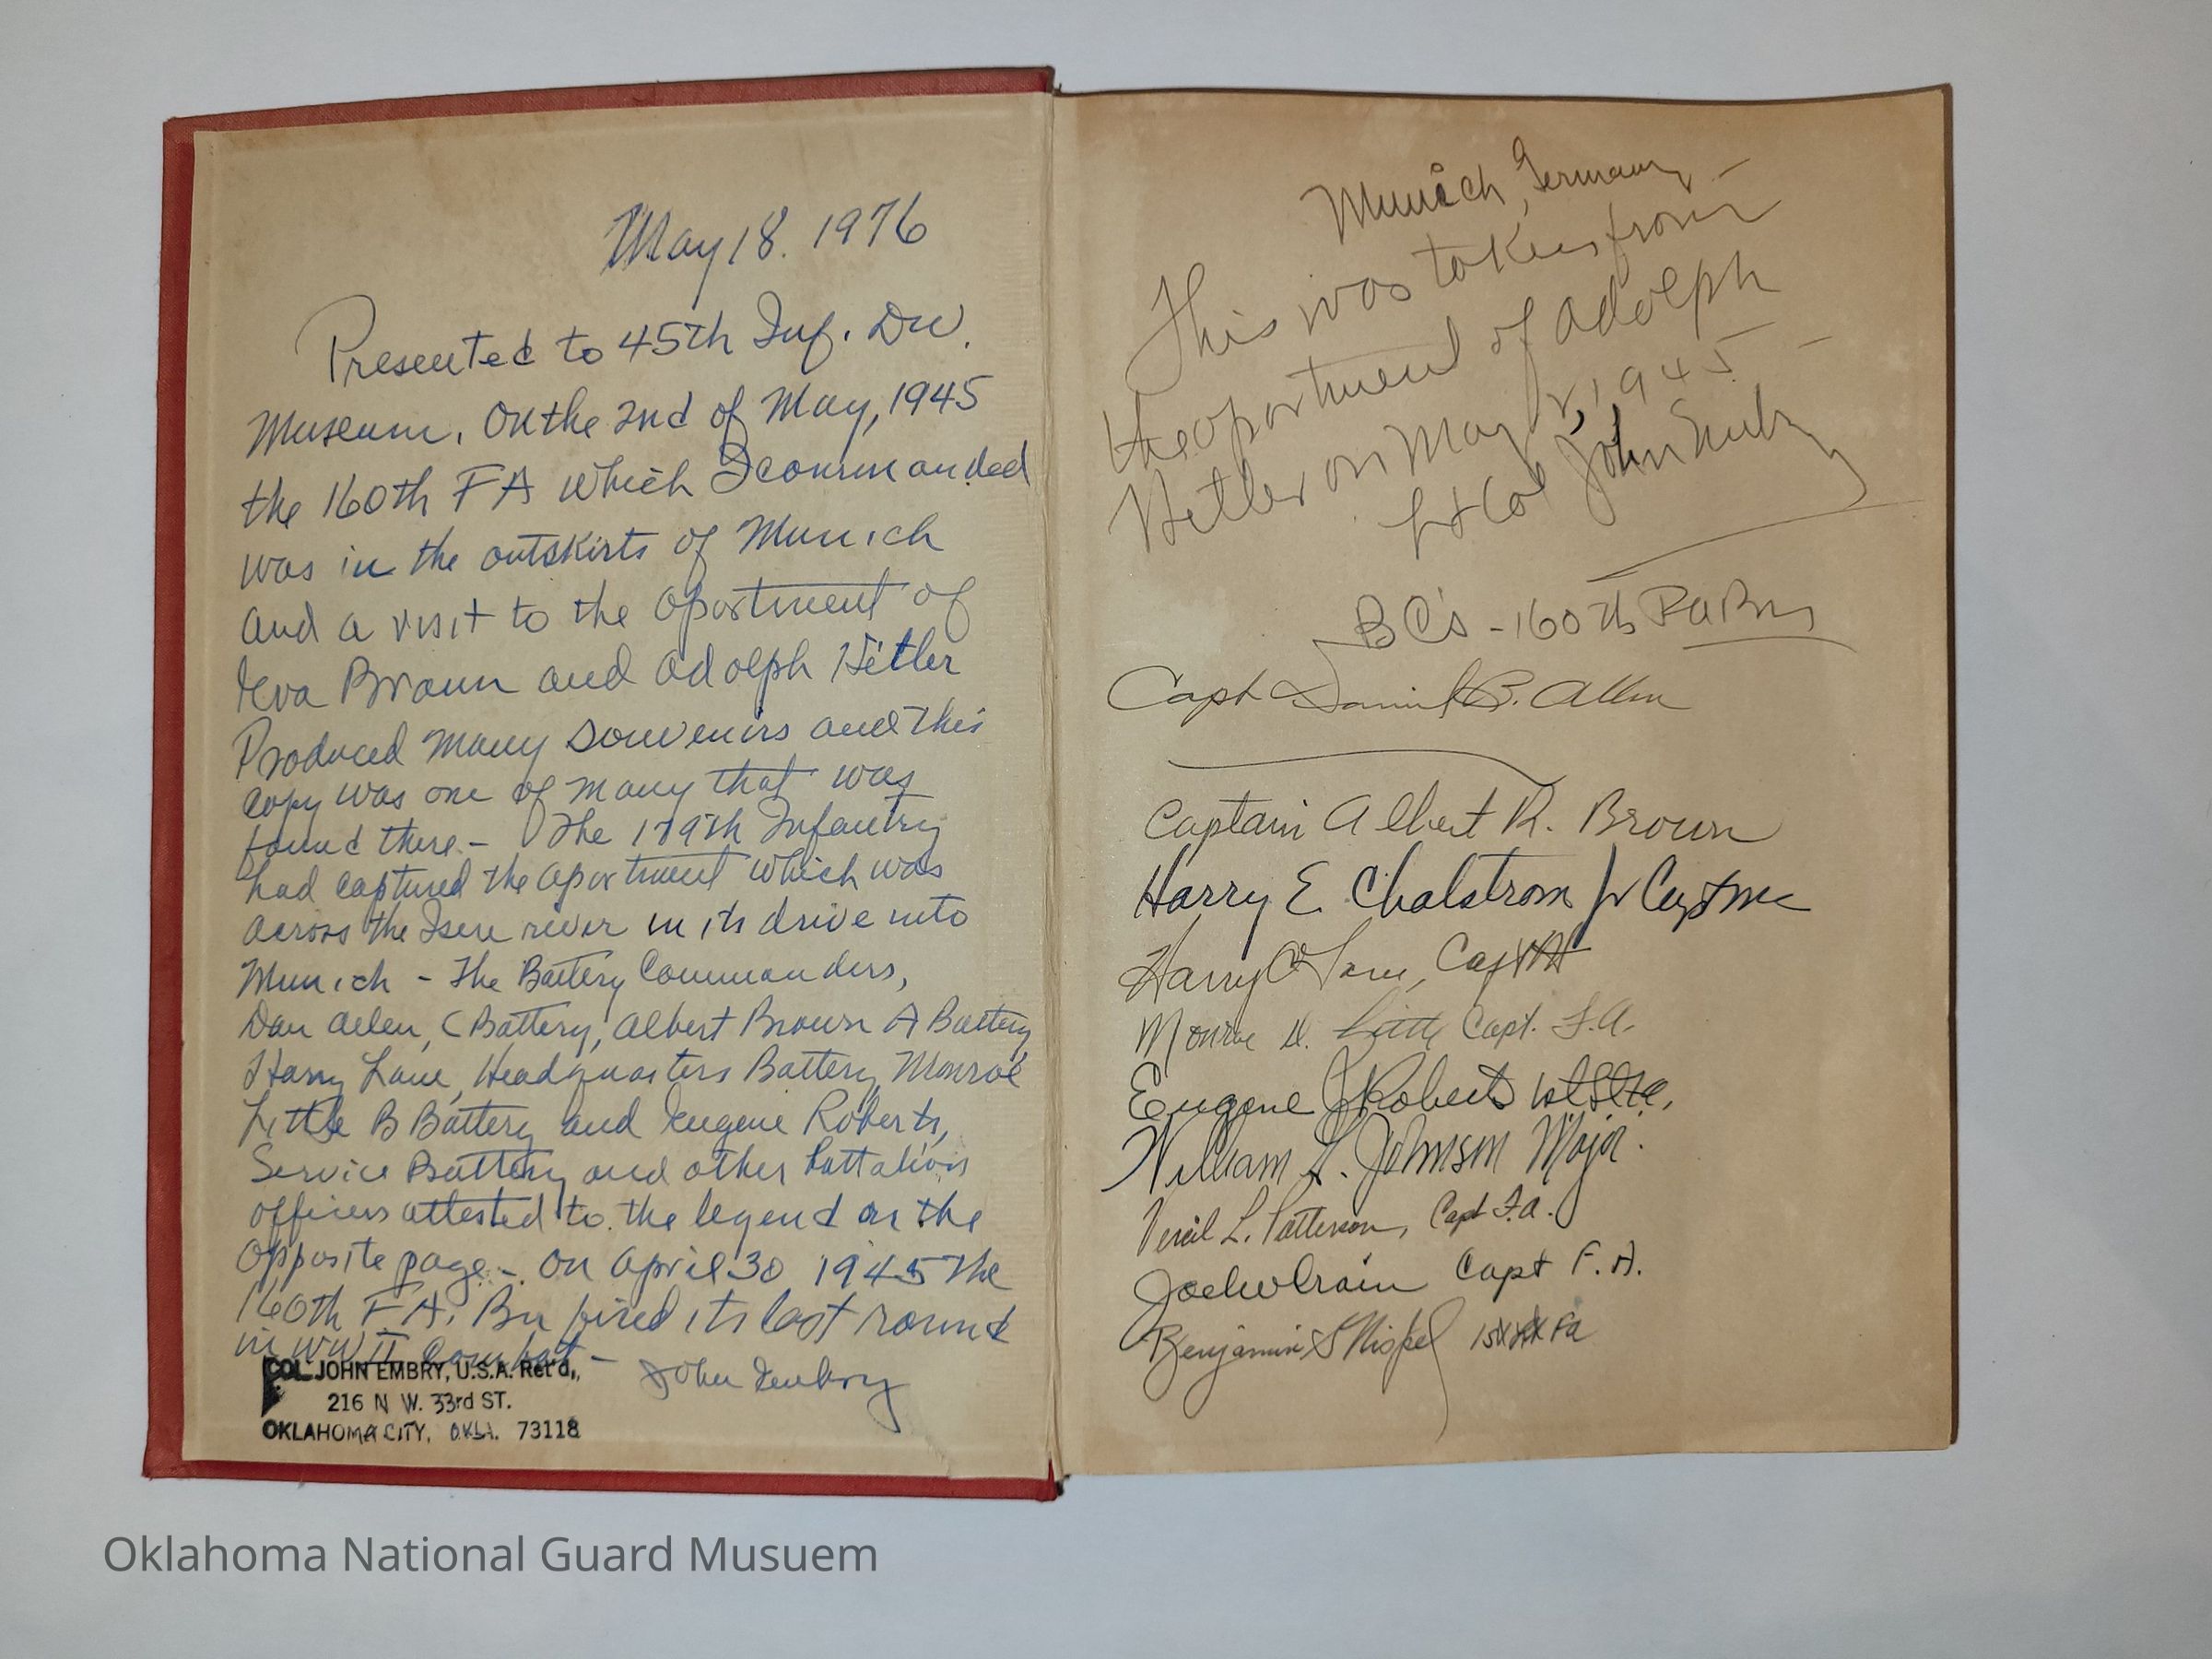 May 18. 1976
Presented to 45th Inf. Div.
Museum. On the 2nd of May, 1945
the 160th FA which I commanded
was in the outskirts of Munich
and a visit to the apartment of
Eva Braun and Adolph Hitler
Produced many souvenirs and this
copy was one of many that was
found there - The 179th Infantry
had captured the apartment which was
across the Isere river in its drive into
Munich - The Battery Commanders,
Dan Allen, C Battery, Albert Brown A Battery
Harry Lane, Headquarters Battery, Monroe
Little B Battery and Eugene Roberts,
Service Battery and other battalion
officers attested to the legend on the
opposite page - On April 30 1945 the
160th F.A. Bn fired its last round
in WW II Combat -
John Embry
COL JOHN EMBRY, U.S.A. Ret'd,
216 N W. 33rd ST.
OKLAHOMA CITY, OKLA. 73118
Munich, Germany -
This was taken from
the apartment of Adolph
Hitler on May 2, 1945 -
Lt Col John Embry
BC's - 160th FA Bn
Capt Daniel B. Allen
Captain Albert R. Brown
Harry E. Chalstrom Jr Capt
Harry Lane, Capt FA
Monroe D. Little Capt. F.A.
Eugene Roberts 1st Lt
William L. Johnson Major.
L. Patterson, Capt F.A.
Joe W Crain Capt F.A.
Benjamin S 1st Lt FA
Oklahoma National Guard Musuem